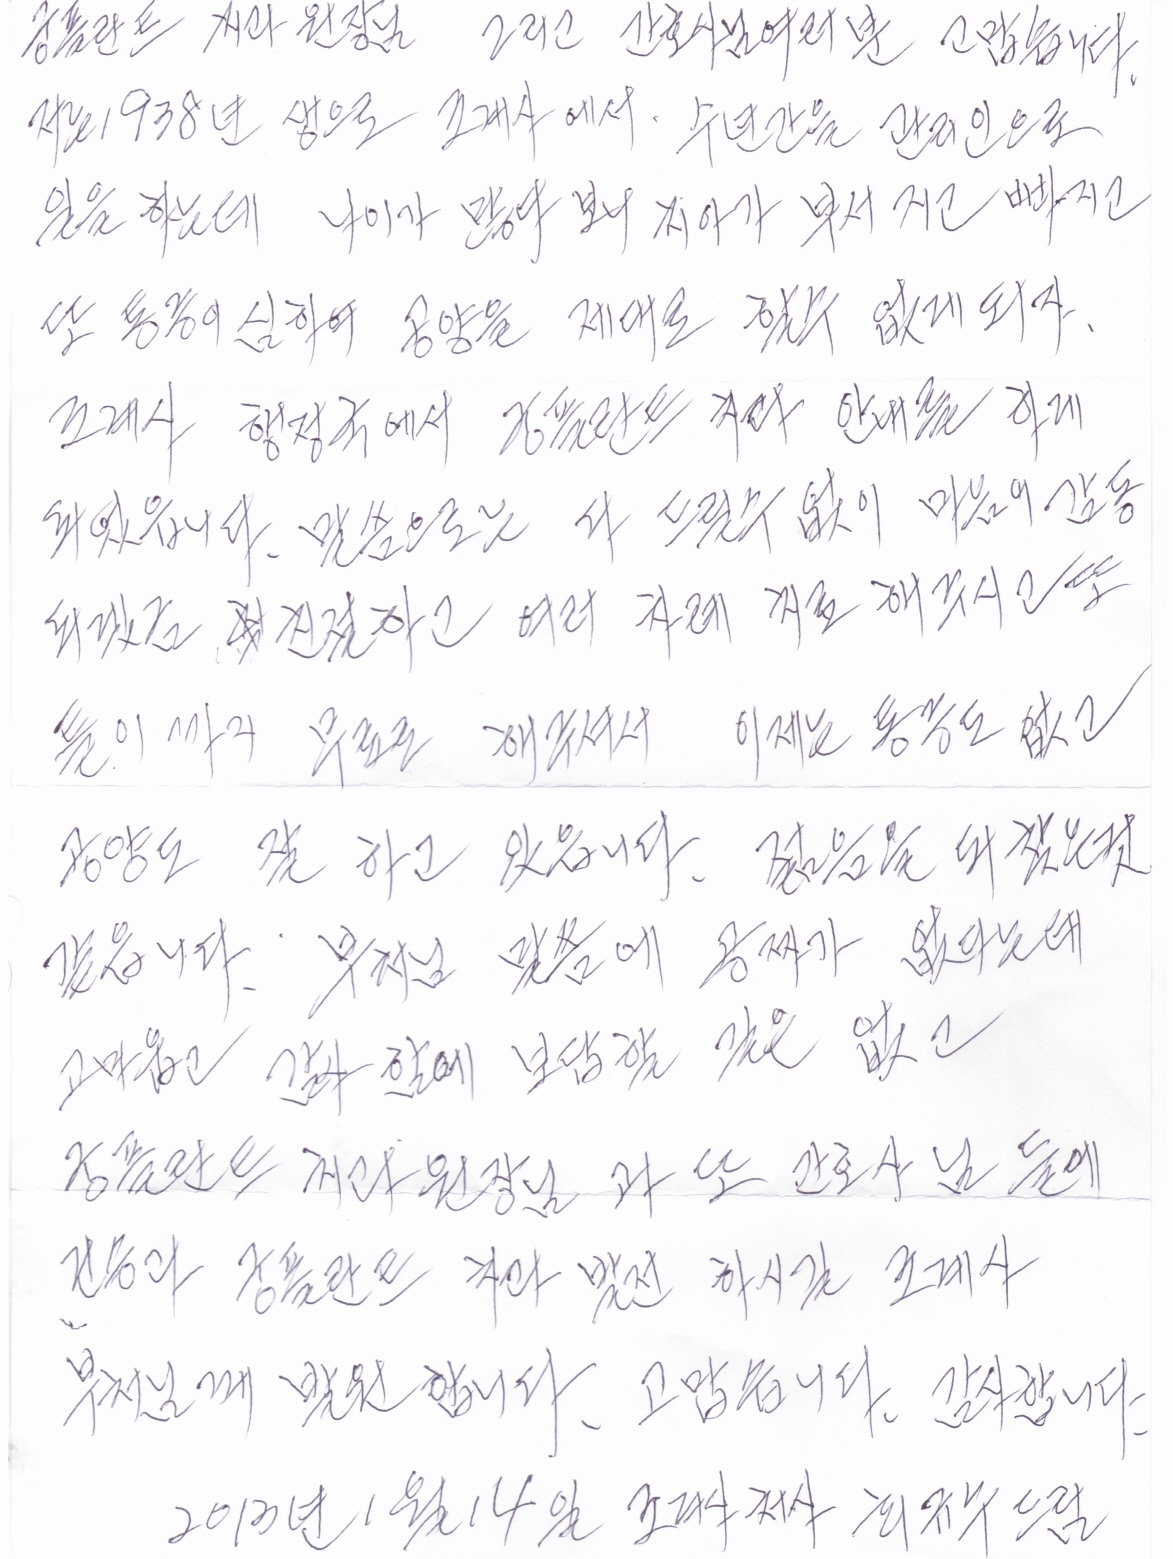 강플란트 치과 원장님 그리고 간호사님 여러분 고맙습니다.
저는 1938년 생으로 조계사에서 수년간을 관리인으로
일을 하는데 나이가 많다 보니 치아가 부서지고 빠지고
또 통증이 심하여 공양을 제대로 할수 없게 되자.
조계사 행정국에서 강플란트 치과 안내를 하게
되었읍니다. 말씀으로는 다 드릴수 없이 마음의 감동
되겠금 친절하고 여러 차례 치료 해주시고 또
틀이 까지 무료로 해주셔서 이제는 통증도 없고
공양도 잘 하고 있읍니다. 젊음을 되찾은것
같읍니다. 부처님 말씀에 공짜가 없다는데
고마웁고 감사 함에 보답할 길은 없고
강플란트 치과 원장님 과 또 간호사 님 들에
건승과 강플란트 치과 발전 하시길 조계사
부처님께 발원 합니다. 고맙습니다. 감사합니다.
2013년 1월 14일 조계사 처사 드림